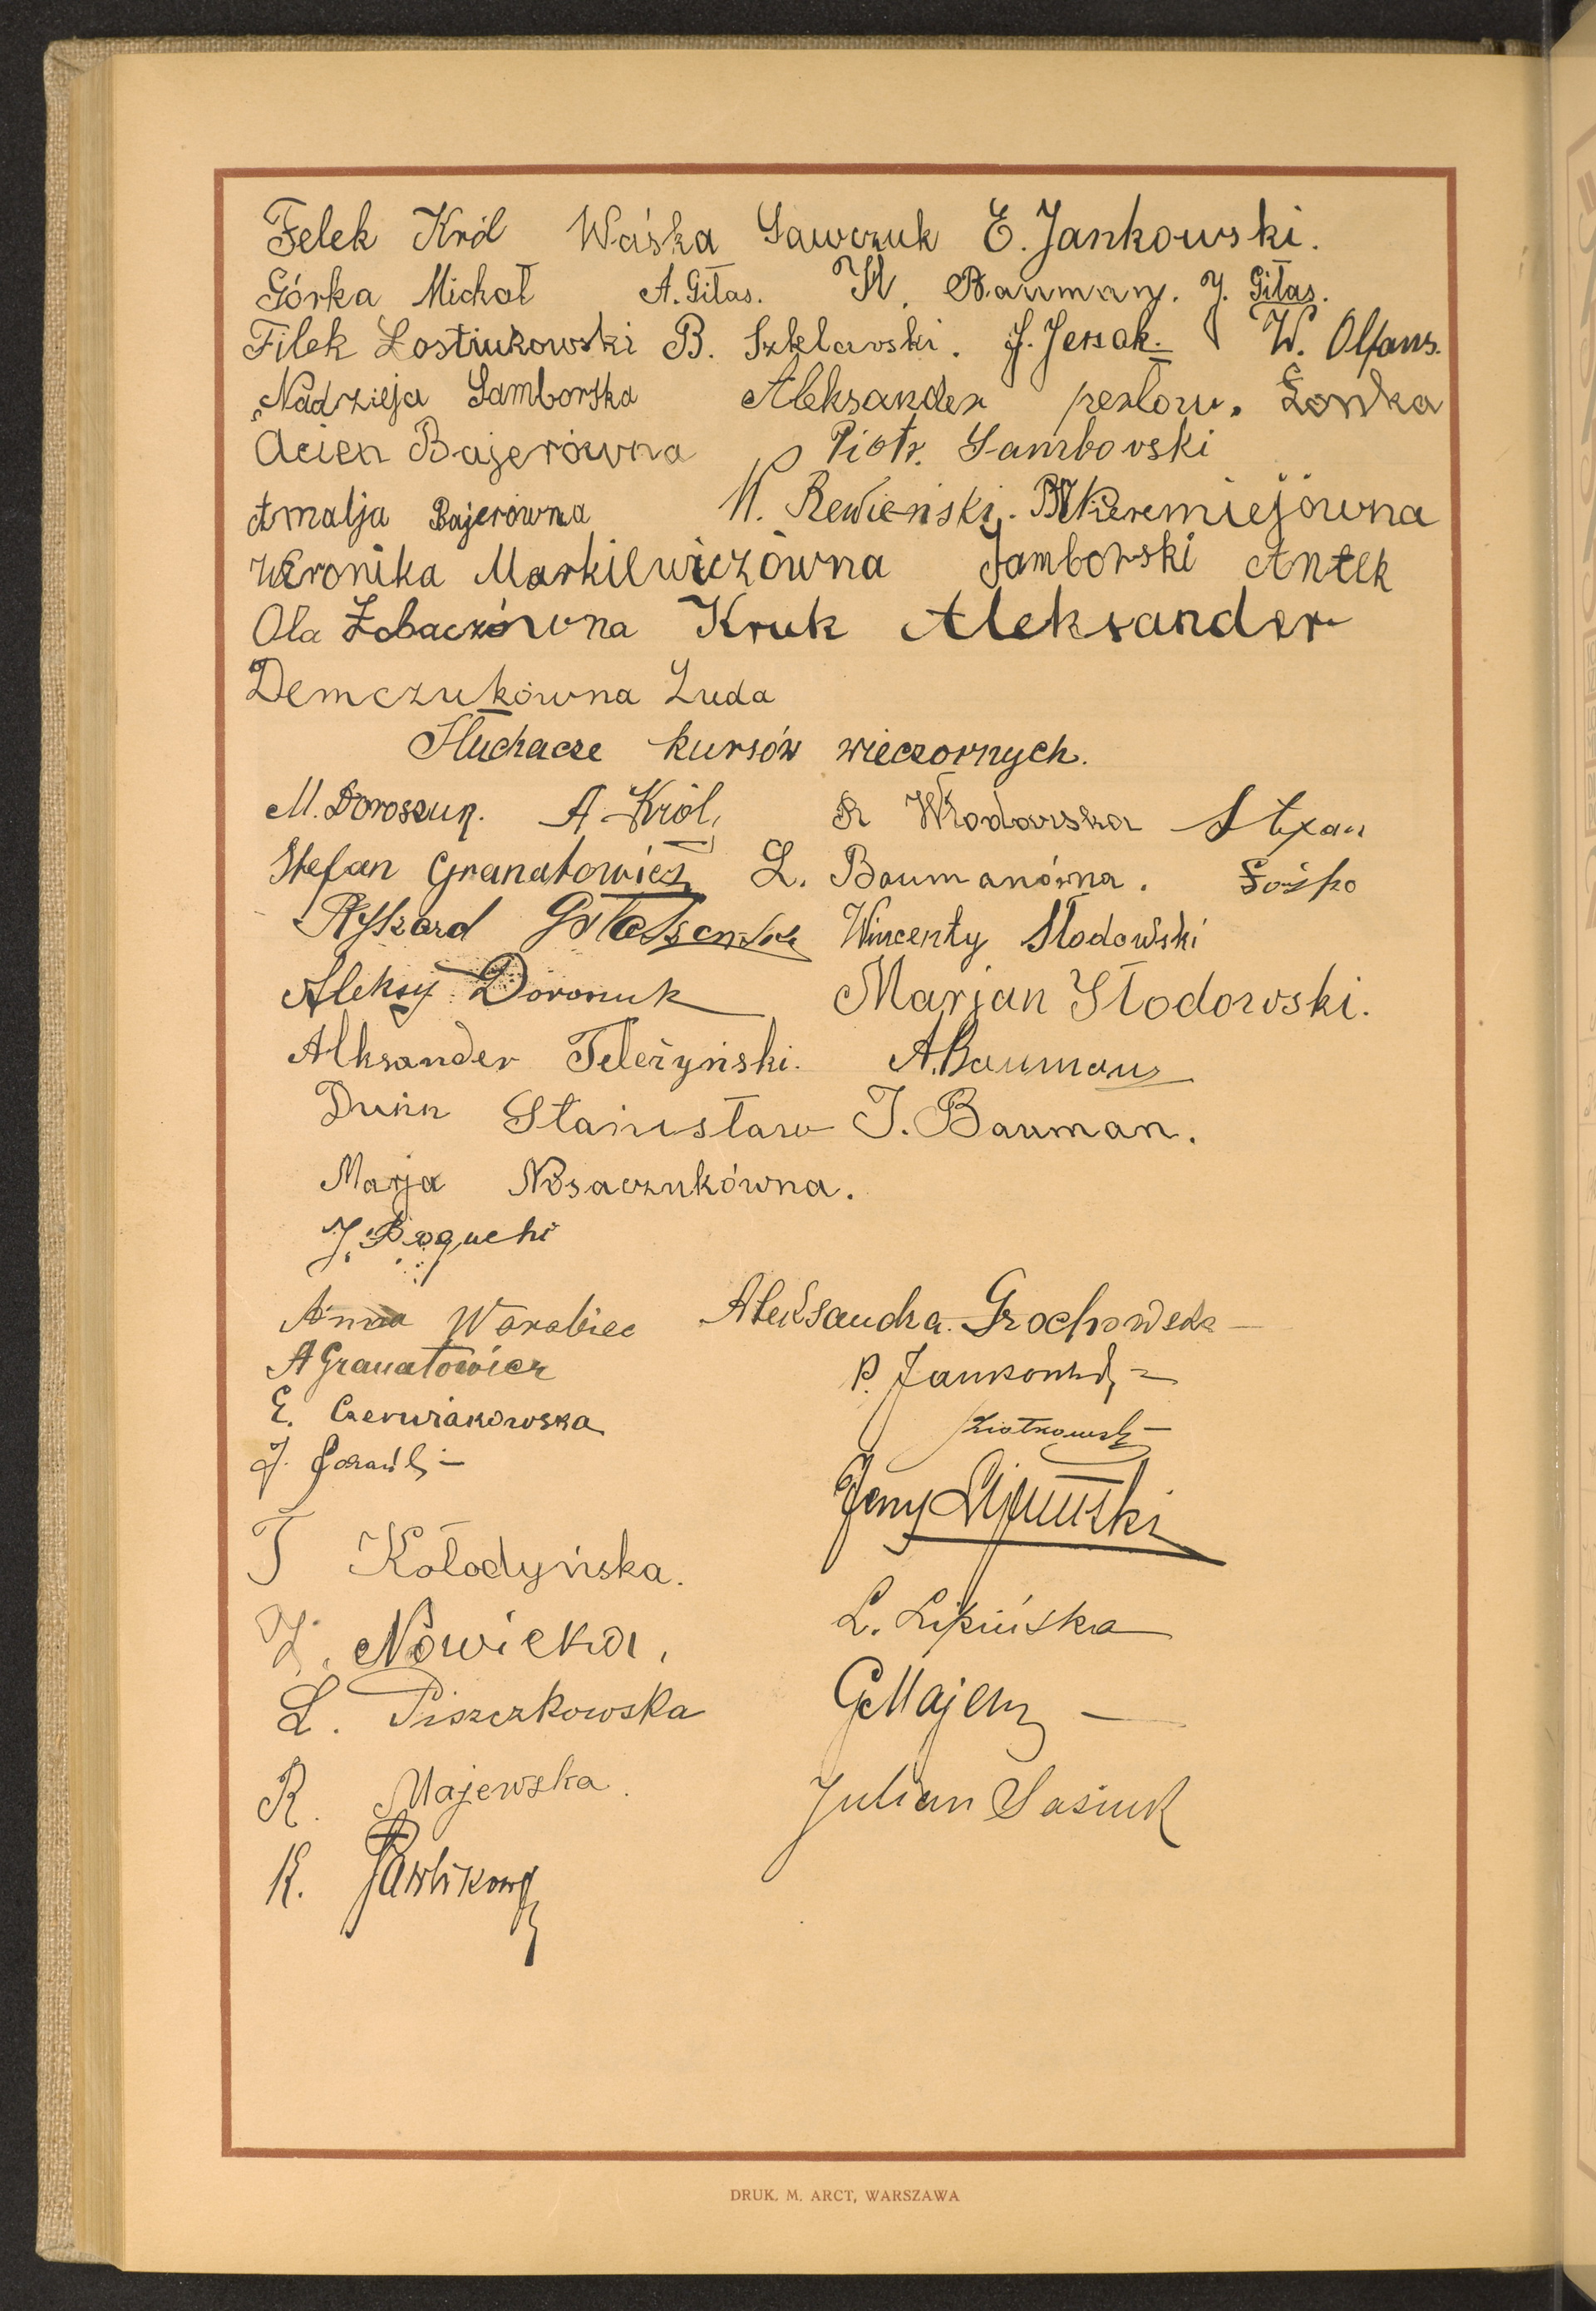 Felek Król Waśka Sawczuk E. Jankowski.
Górka Michał A. Gitas. W. Bauman. J. Gitas.
Filek Lostiukowski B. Szklarski. J. Jersak. W. Olfans.
Nadzieja Samborska Aleksander
Bajerówna Piotr. Samborski
Amalja Bajerówna W. Rewieński. Jeremiejówna
Weronika Markilwiczówna Samborski Antek
Ola Kruk Aleksander
Demczukówna Luda
Słuchacze kursów wieczornych.
M. Doroszuk. A. Król, R Włodarska Stefan
Stefan Granatowicz L. Baumanówna. Łośko
Ryszard Wincenty Słodowski
Aleksy Doroszuk Marjan Słodowski.
Alksander Teleżyński. A. Bauman
Duńn Stanisław J. Bauman.
Marja Nosaczukówna.
J. Bogucki
Anna Warabiec Aleksandra Grochowska
A Granatowicz P. Jankowski
E. Czerwiakowska Piotrowski
J.
Jerzy Lipiński
T Kołodyńska.
L. Lipińska
Z. Nowicka,
G Majer
L. Piszczkowska
Julian Sasiuk
R. Majewska.
K. Pawlikowski
DRUK. M. ARCT, WARSZAWA